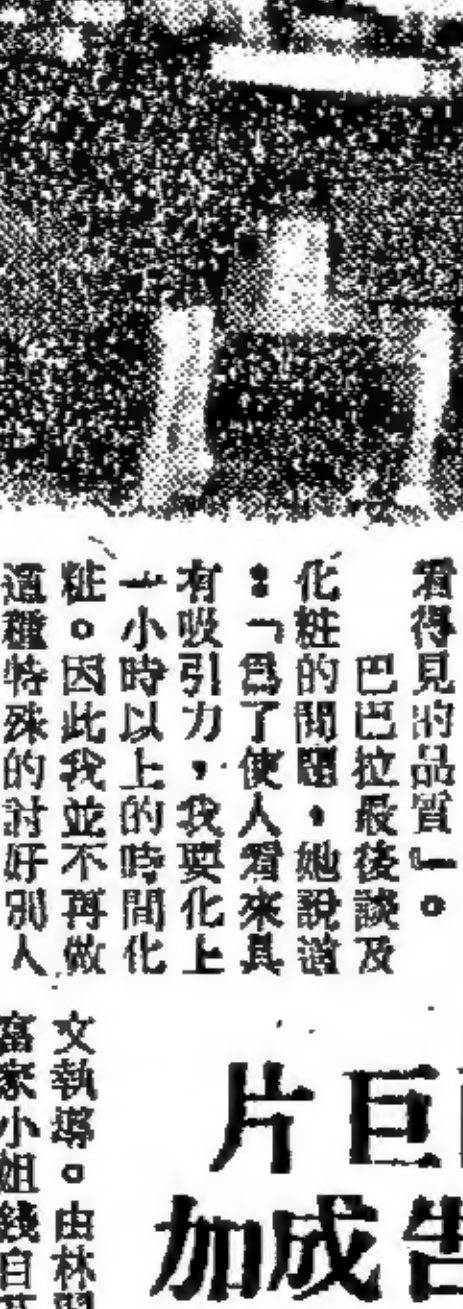 看得見的品質」。
巴巴拉最後談及
化粧的問題,她說道
:「爲了使人看來具
有吸引力,我要化上
一小時以上的時間化
粧。因此我並不再做
這種特殊的討好別人
巨片
告成加
文執導。由林
富家小姐錢自